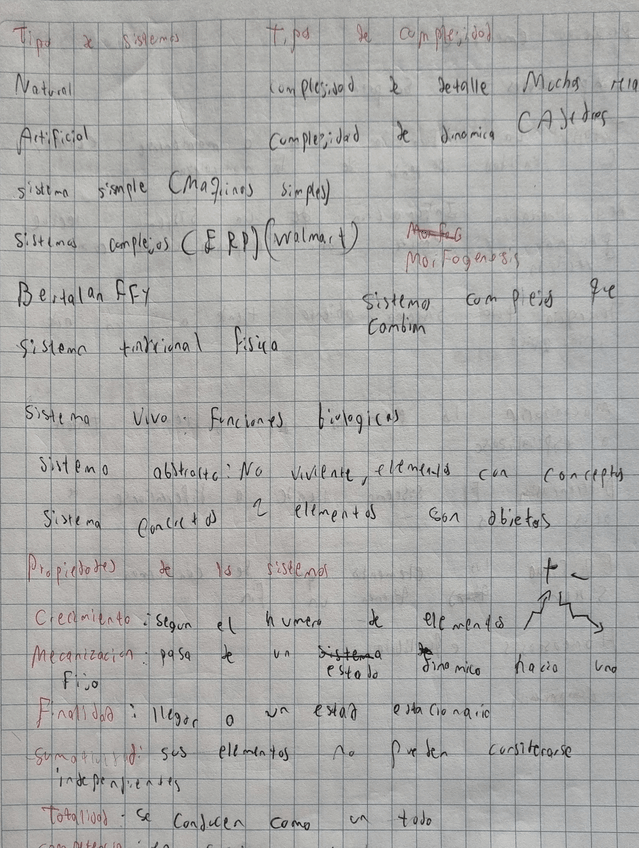 Tipo de sistemas
Tipo de complejidad
Natural
complejidad de detalle Muchas
Artificial
complejidad de dinamica CAJedres
sistema simple (Maqinas simples)
sistemas complejos (ERP) (Walmart)
Morfogenesis
Bertalan FFy
sistemas complejos que
combin
sistema fisica
sistema vivo: funciones biologicas
sistema abstracto: No viviente, elementos con conceptos
sistema concretos 2 elementos son objetos
Propiedades de los sistemas
Crecimiento: segun el numero de elementos
Mecanizacion: pasa de un estado dinamico hacia uno
Fijo
Finalidad: llegar a un estad estacionario
Sumatividad: sus elementos no pueden
independientes
Totalidad - se conducen como un todo